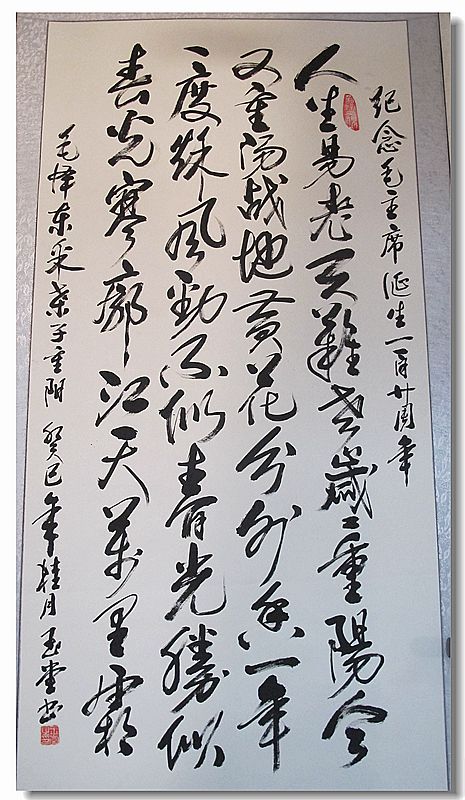 纪念毛主席诞生一百廿周年
人生易老天難老歲々重陽今
又重阳战地黄花分外香一年
一度秋风劲不似春光勝似
春光寥廓江天萬里霜
毛泽东采桑子重阳 癸巳年桂月玉堂书